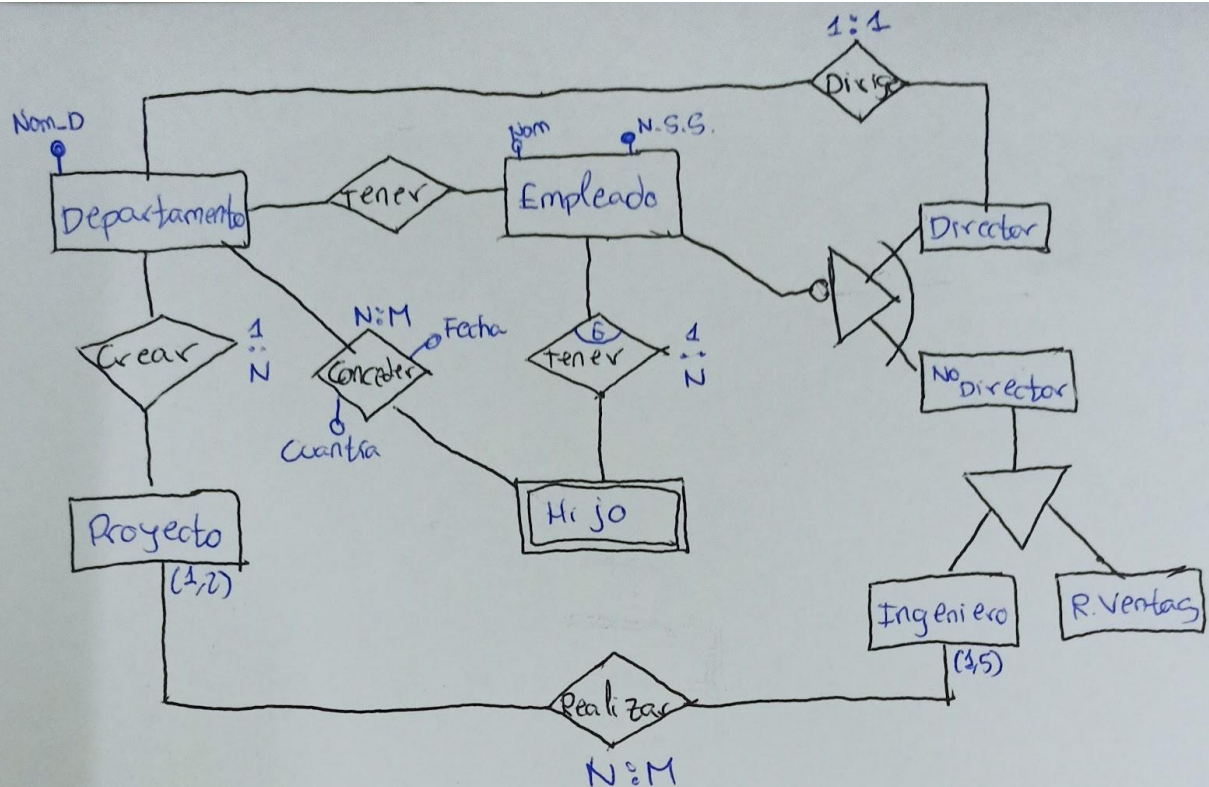 1:1
Dirige
Nom_D
Nom
N.S.S.
Departamento
Tener
Empleado
Director
N:M
Fecha
Crear
1:N
Conceder
Cuantía
E
Tener
1:N
No Director
Proyecto
(1,2)
Hijo
Ingeniero
R.Ventas
(1,5)
Realizar
N:M